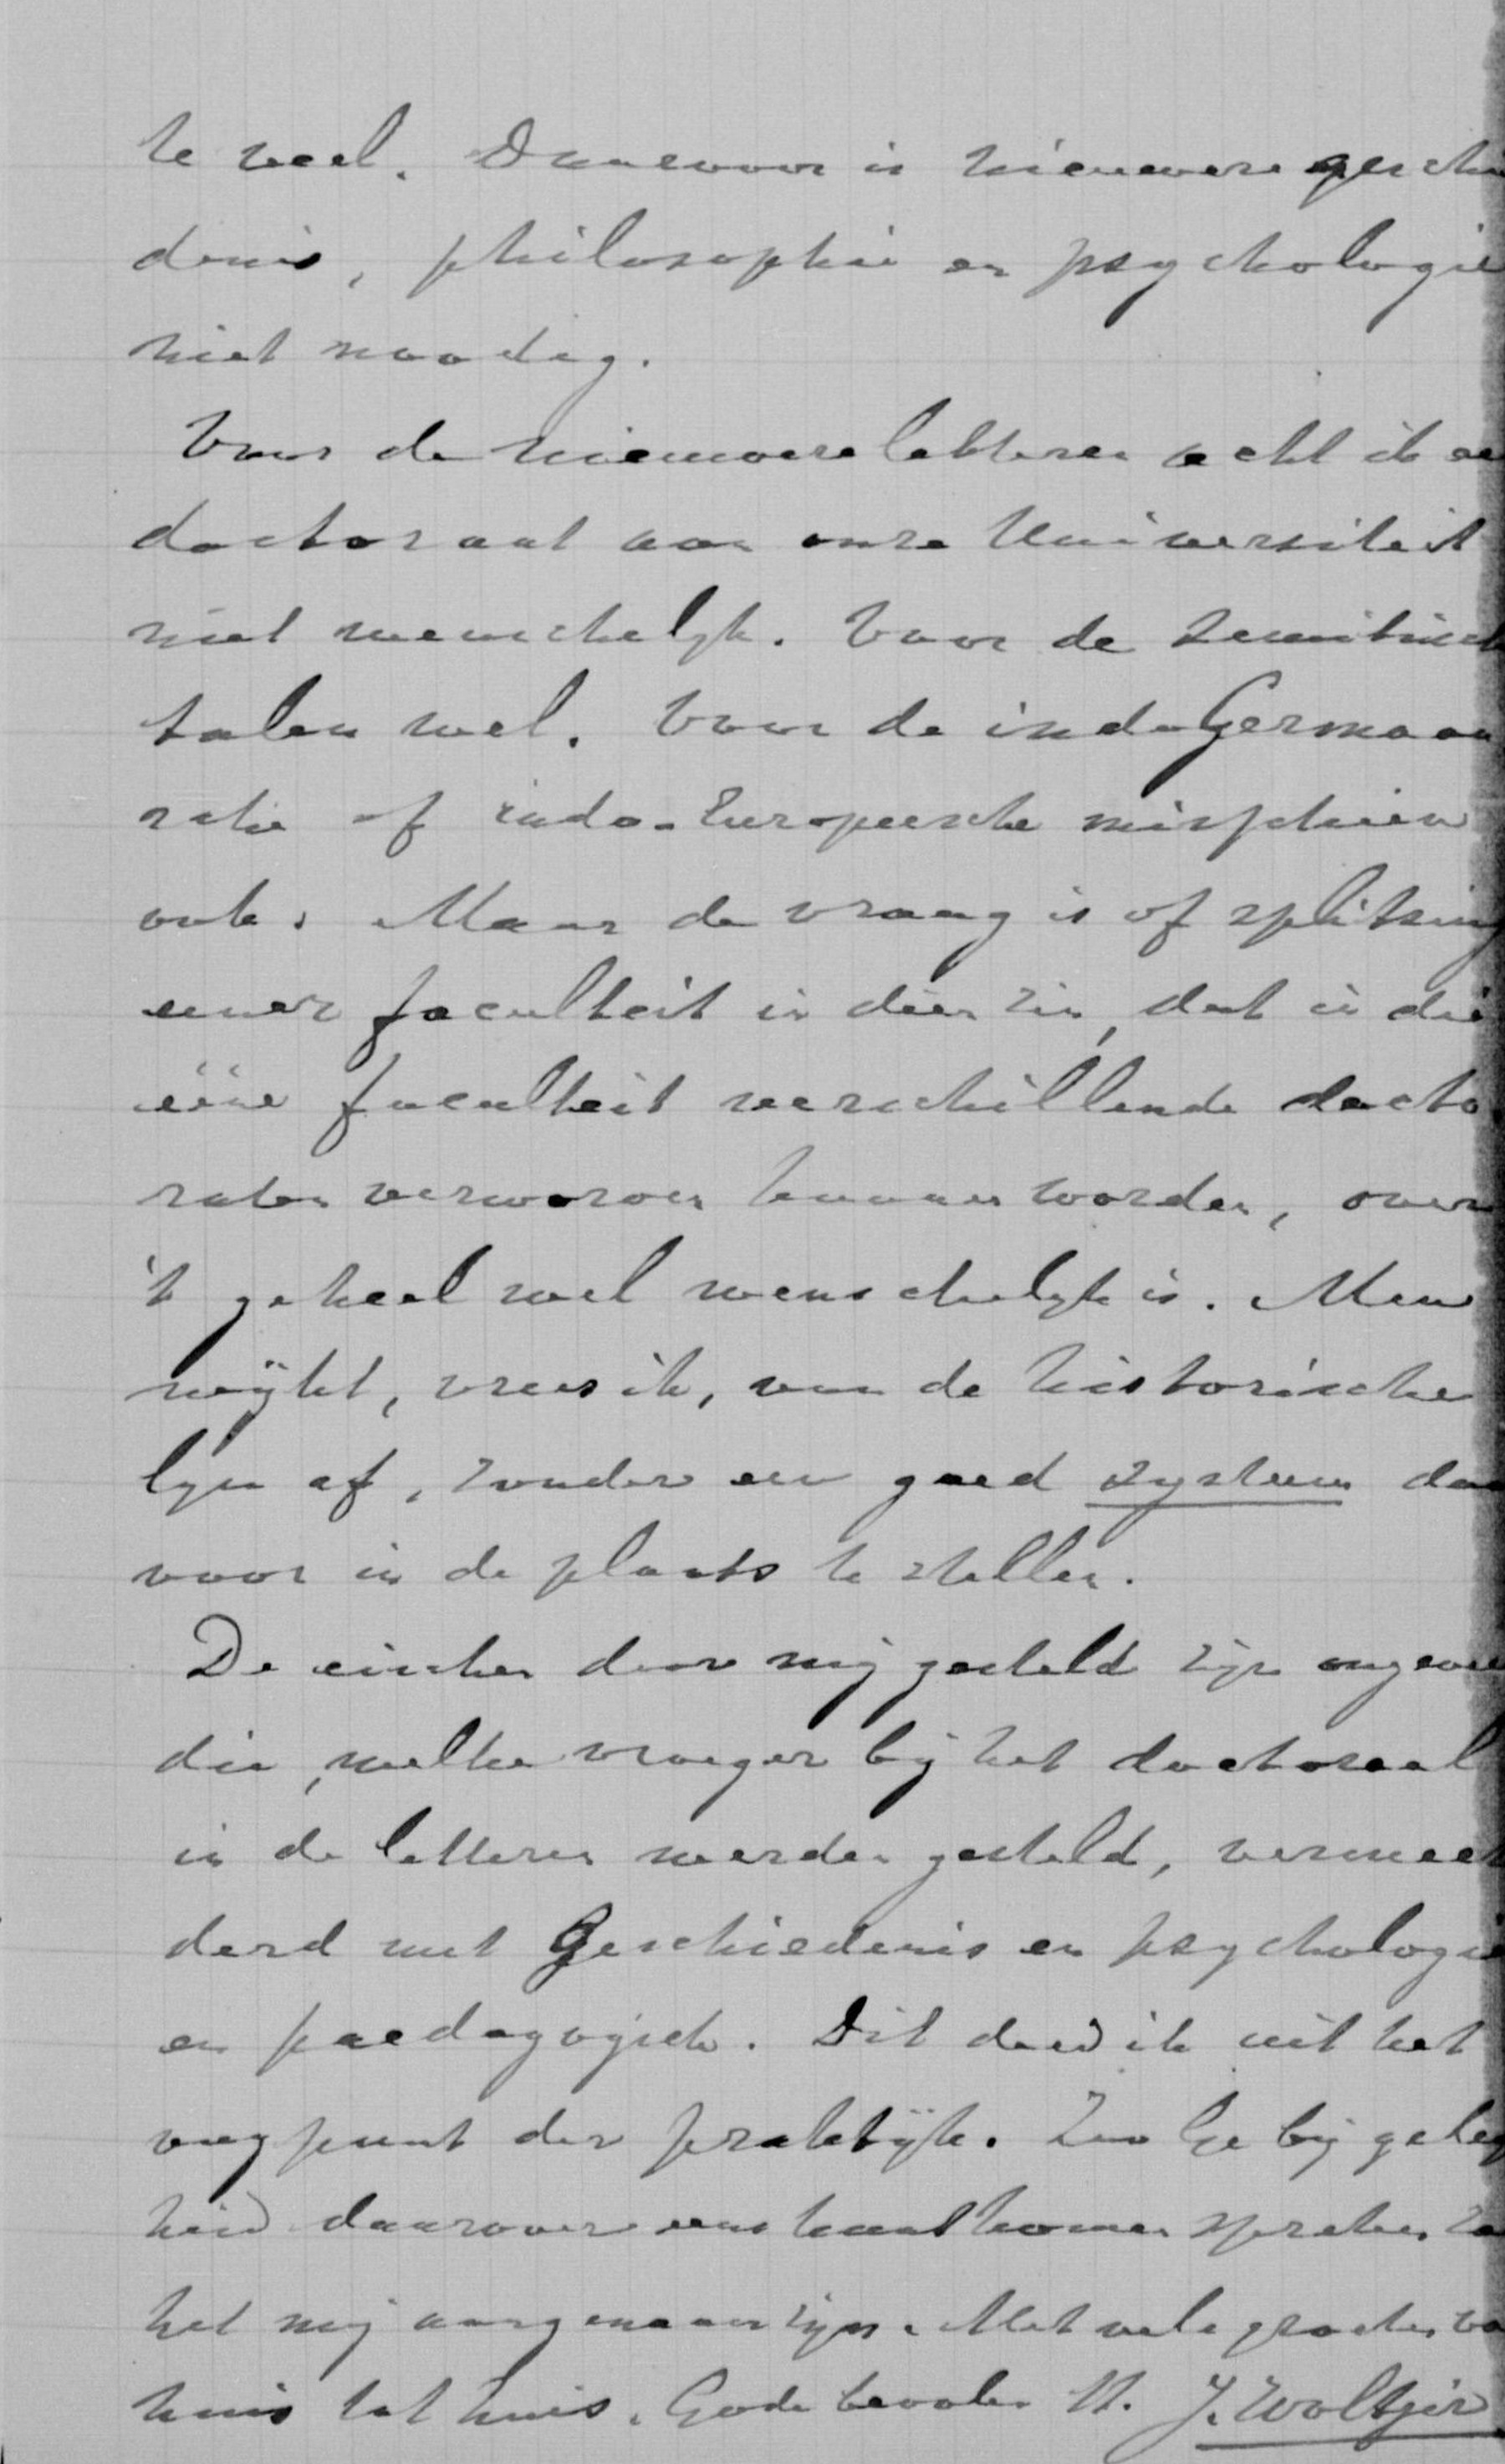 te veel. Daarvoor is nieuwere geschie
denis, philosophie en psychologie
niet noodig.
Voor de nieuwere letteren acht ik een
doctoraat aan onze Universiteit
niet wenschelijk. Voor de Semitische
talen wel. Voor de indoGermaan
sche of indo-Europeesche misschien
ook. Maar de vraag is of splitsing
eener faculteit in dien zin, dat in die
ééne faculteit verschillende docto
raten verworven kunnen worden, over
't geheel wel wenschelijk is. Men
wijkt, vrees ik, van de historische
lijn af, zonder een goed systeem daar
voor in de plaats te stellen.
De eischen door mij gesteld zijn ongeveer
die, welke vroeger bij het doctoraal
in de letteren werden gesteld, vermeer
derd met Geschiedenis en psychologie
en paedagogiek. Dit deed ik uit het
oogpunt der praktijk. Zoo Ge bij gelegen
heid daarover eens kondt komen spreken zou
het mij aangenaam zijn. Met vele groeten van
huis tot huis. Gode bevolen tt. J. Woltjer